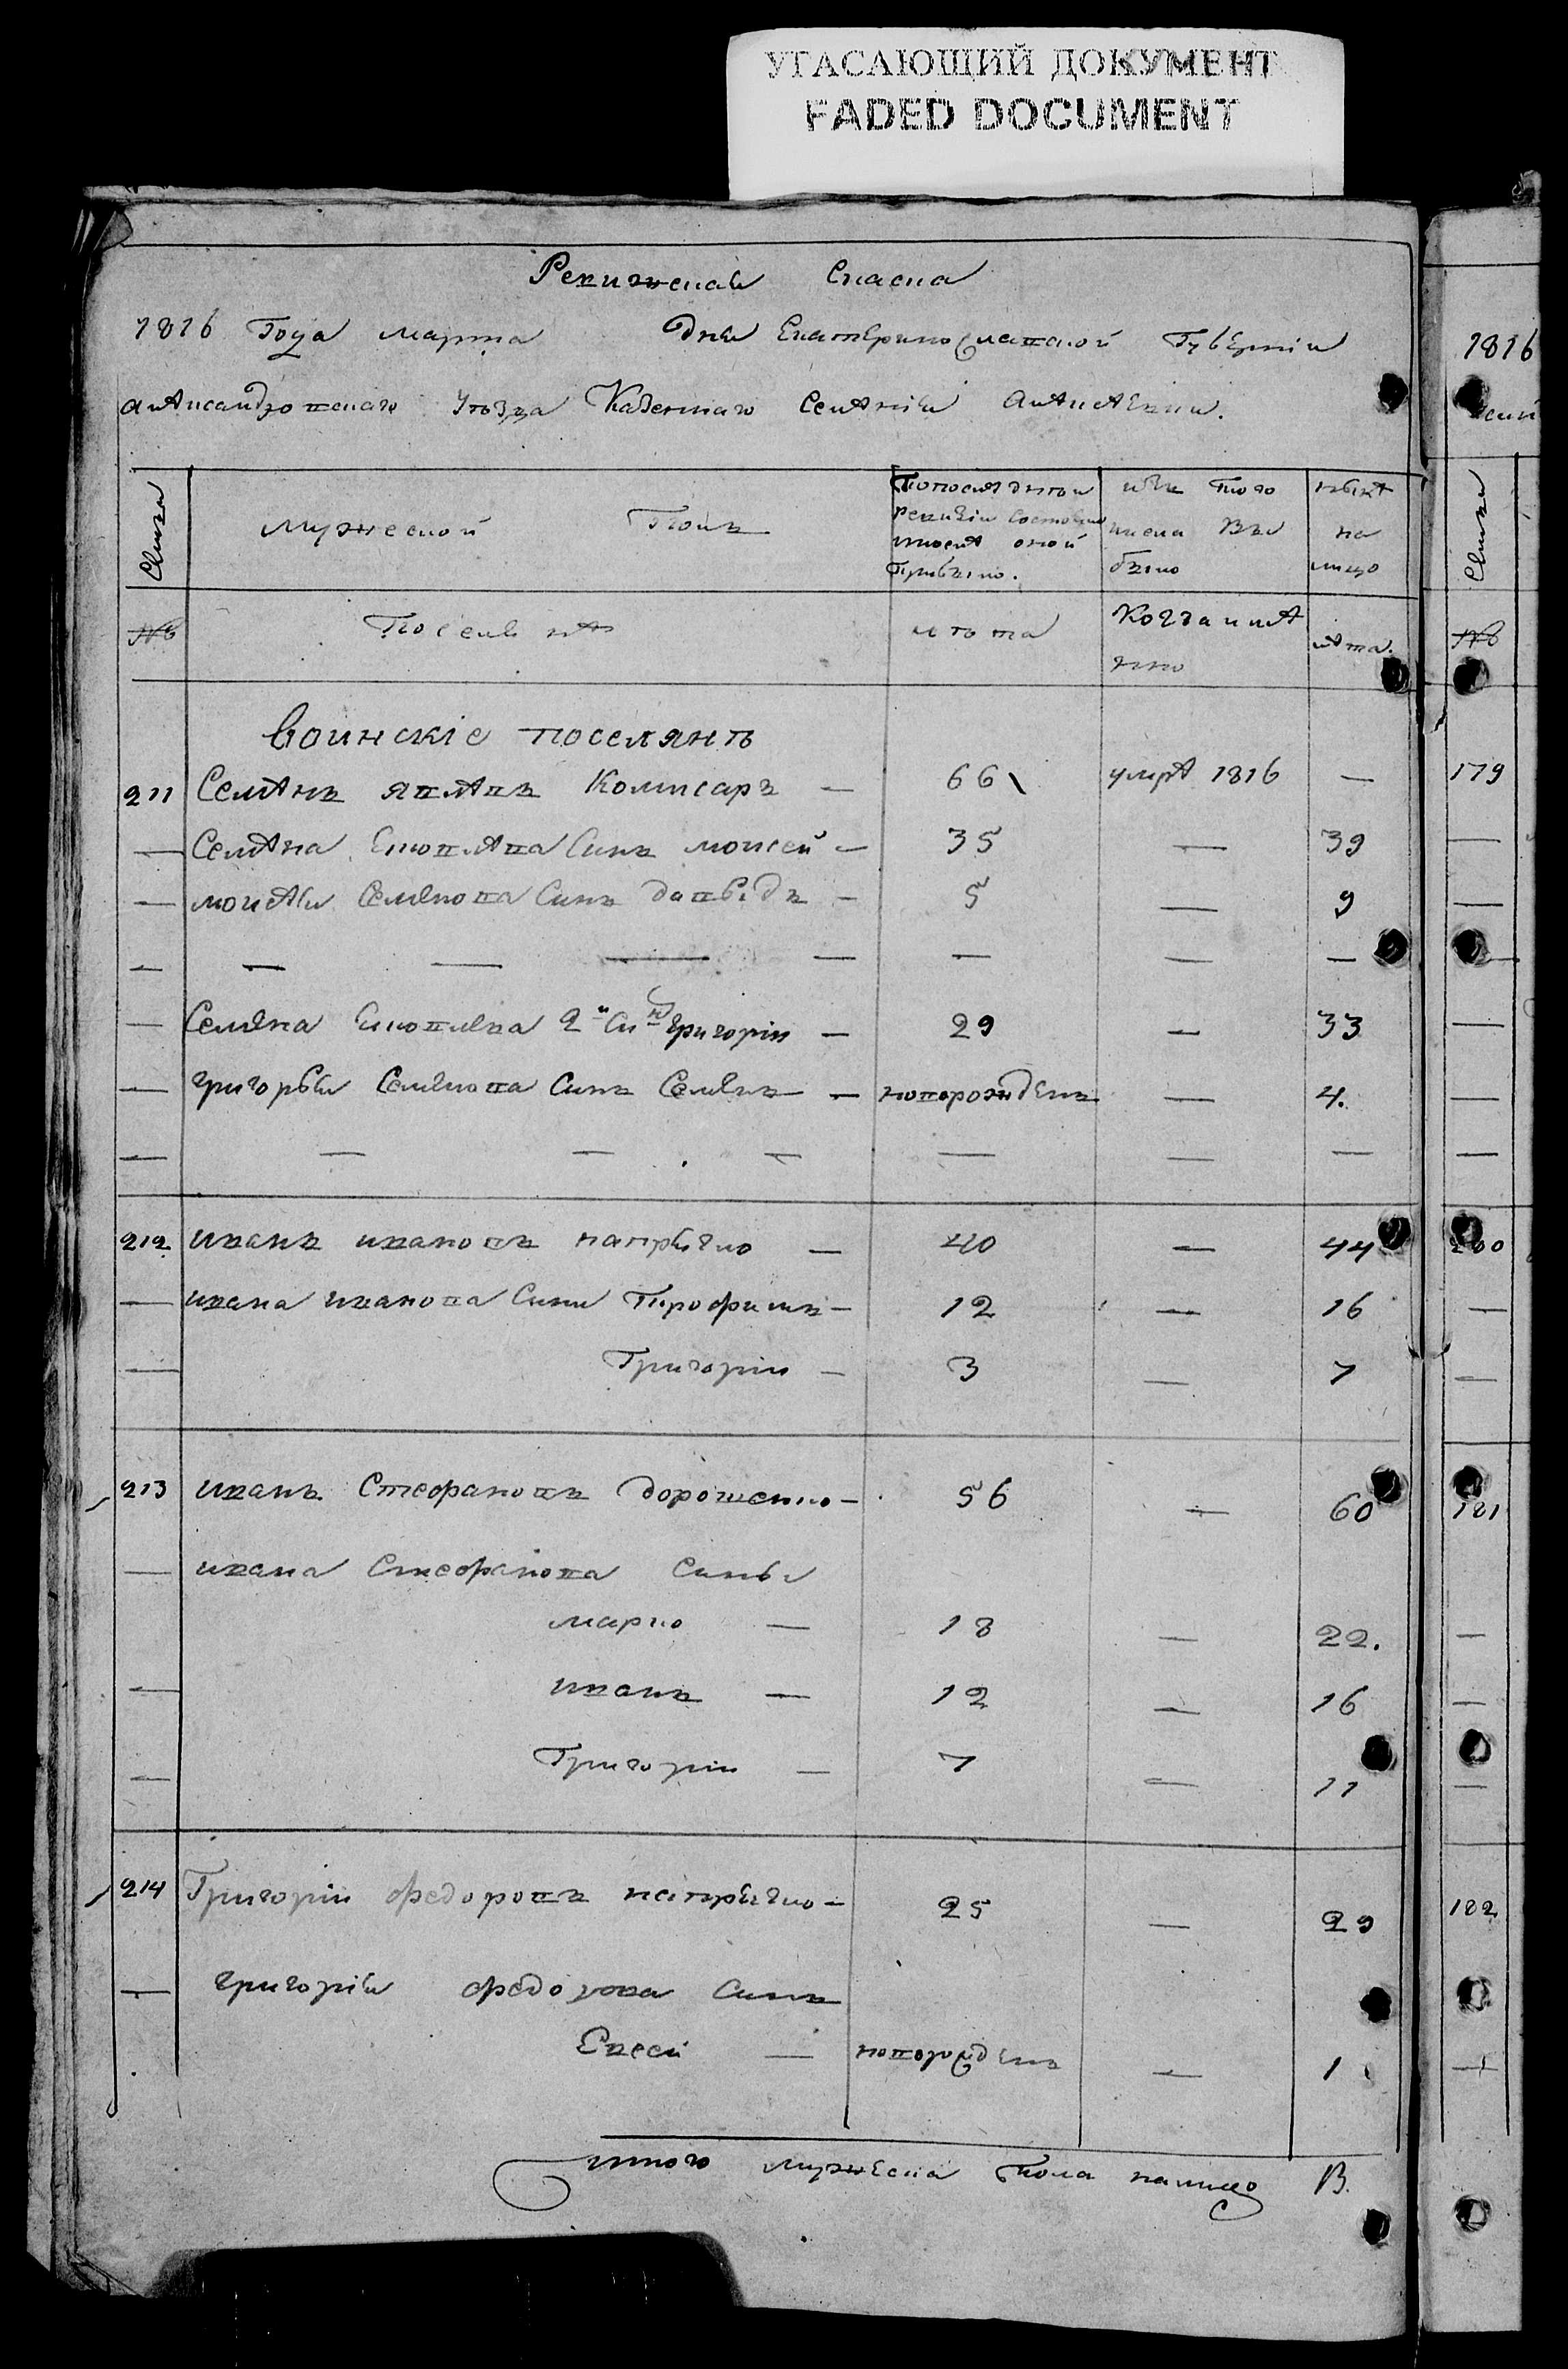 УГАСАЮЩИЙ ДОКУМЕНТ
FADED DOCUMENT
Ревижская Скаска
1816 Года марта дня Екатеринославской Губерніи
александровскаго уѣзда Казеннаго Селенія алексеевки.
Семьи мужеской Полъ По последней изъ того ныне
ревизіи состояло числа Вы на
и после оной было лицо
Прибыло.
№ Поселяне лѣта Когда имен лета.
но
воинскіе поселянѣ
211 Семенъ яковлевъ Комисаръ — 66 умре 1816 —
— Семена Сынъ моисей — 35 — 39
— моисея Семенова Сынъ давыдъ — 5 — 9
— — — — — — — —
— Семена 2й Сынъ григорій — 29 — 33
— григорья Семенова Сынъ Семенъ — новорожденъ — 4.
— — — — — — —
212 иванъ ивановъ напрыгло — 40 — 44
— ивана иванова Сыны Трофимъ — 12 — 16
— Григорій — 3 — 7
213 иванъ Стефановъ дорошенко — 56 — 60
— ивана Стефанова Сыны
марко — 18 — 22.
— иванъ — 12 — 16
— Григорій — 7 — 11
214 Григорій федоровъ — 25 — 29
— григорія федорова Сынъ
Евсей — новорожденъ — 1
итого мужеска пола налицо 13.
1816
Семьи
№
179
181
182